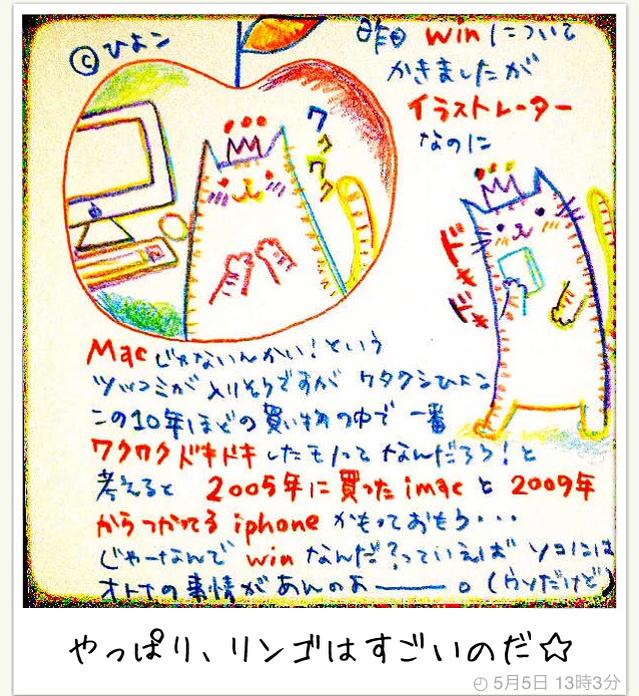 ©ひよこ
昨日 winについて
かきましたが
イラストレーター
なのに
ワクワク
ドキドキ
Macじゃないんかい!という
ツッコミが入りそうですが ワタクシひよこ
この10年ほどの買い物の中で 一番
ワクワクドキドキしたモノってなんだろう!と
考えると 2005年に買ったimacと2009年
からつかってるiphoneかもっておもう・・・
じゃーなんでwinなんだ?っていえば ソコには
オトナの事情があんのよ——。(ウソだけど)
やっぱり、リンゴはすごいのだ☆
5月5日 13時3分